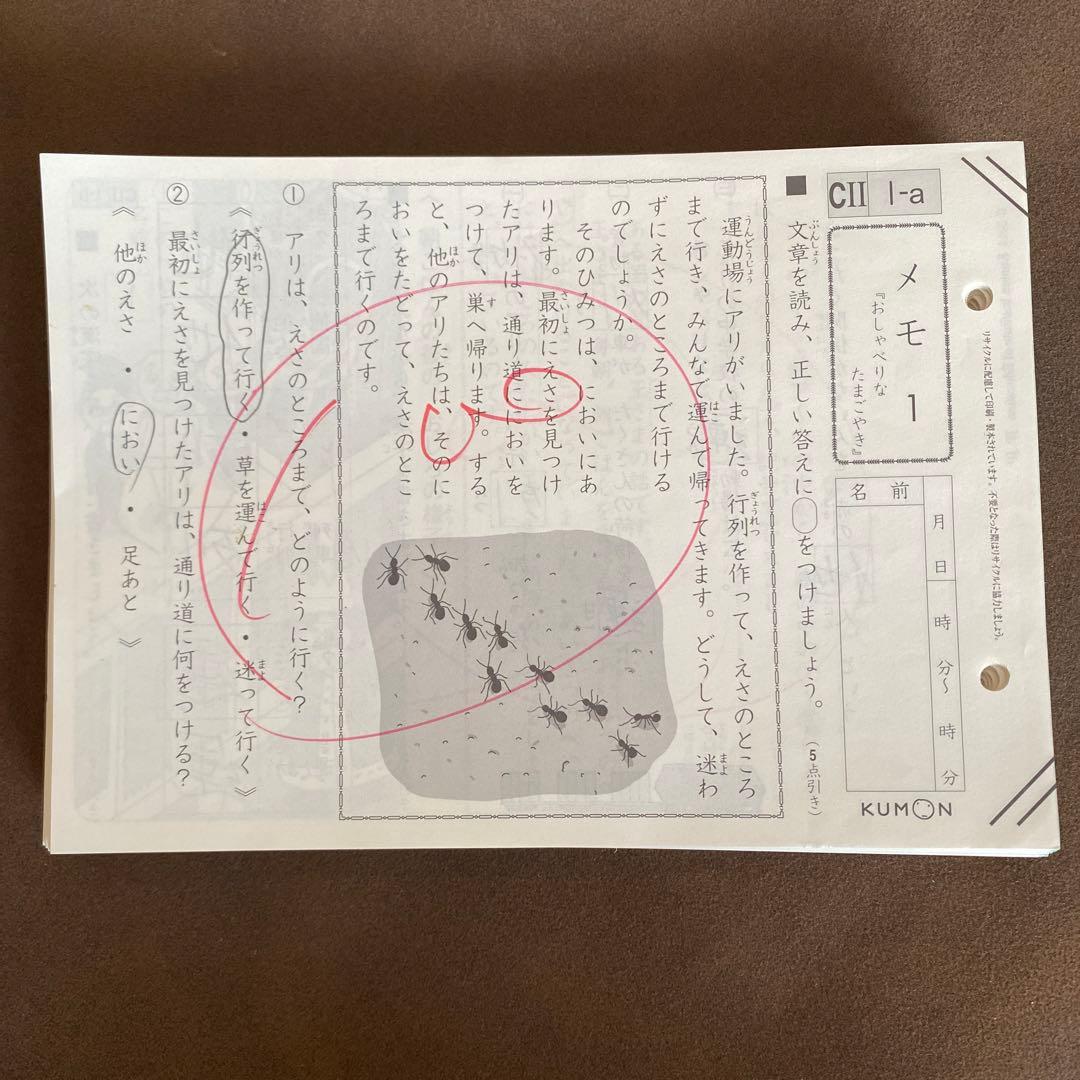 CⅡ 1-a
メモ 1
『おしゃべりな
たまごやき』
名前
月 日
時 分〜 時 分
KUMON
リサイクルに配慮して印刷・製本されています。不要となった際はリサイクルに協力しましょう。
■ 文章を読み、正しい答えに○をつけましょう。(5点引き)
運動場にアリがいました。行列を作って、えさのところ
まで行き、みんなで運んで帰ってきます。どうして、迷わ
ずにえさのところまで行ける
のでしょうか。
そのひみつは、においにあ
ります。最初にえさを見つけ
たアリは、通り道ににおいを
つけて、巣へ帰ります。する
と、他のアリたちは、そのに
おいをたどって、えさのとこ
ろまで行くのです。
① アリは、えさのところまで、どのように行く?
《行列を作って行く・草を運んで行く・迷って行く》
② 最初にえさを見つけたアリは、通り道に何をつける?
《他のえさ・におい・足あと》